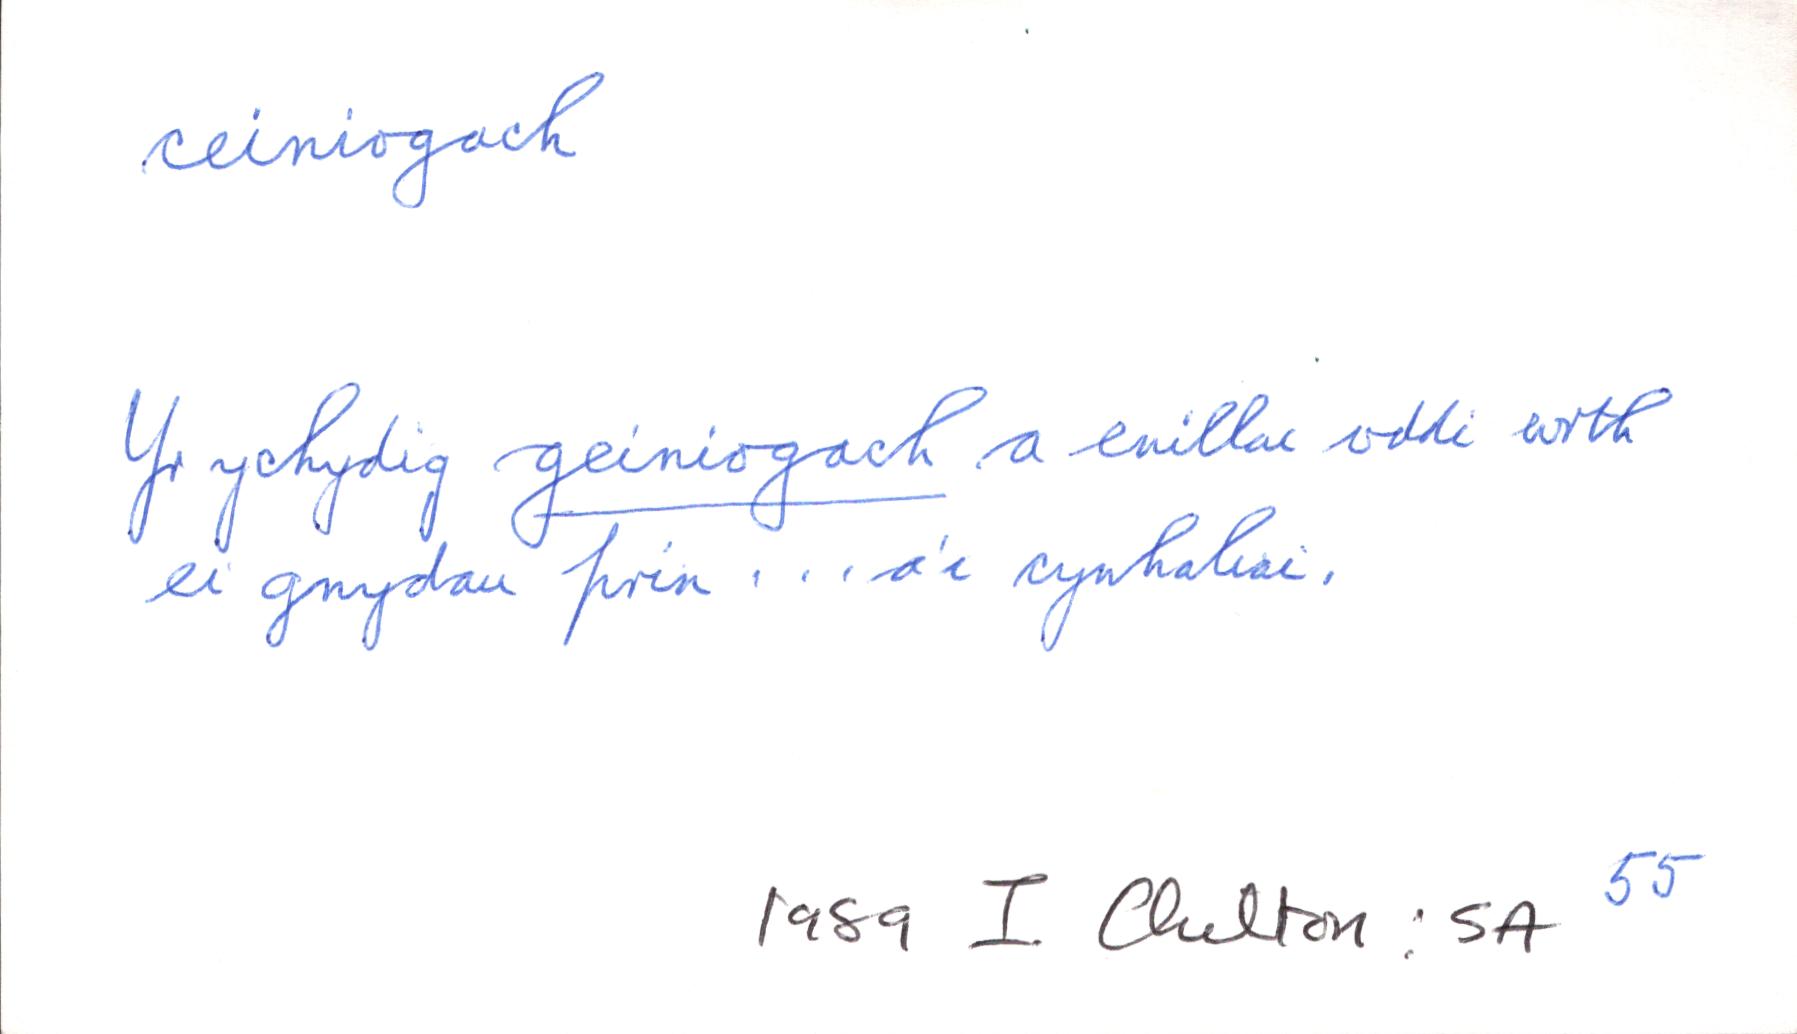 ceiniogach
Yr ychydig geiniogach a enillai oddi wrth
ei gnydau prin . . . a'i cynhaliai.
1989 I Chilton : SA 55